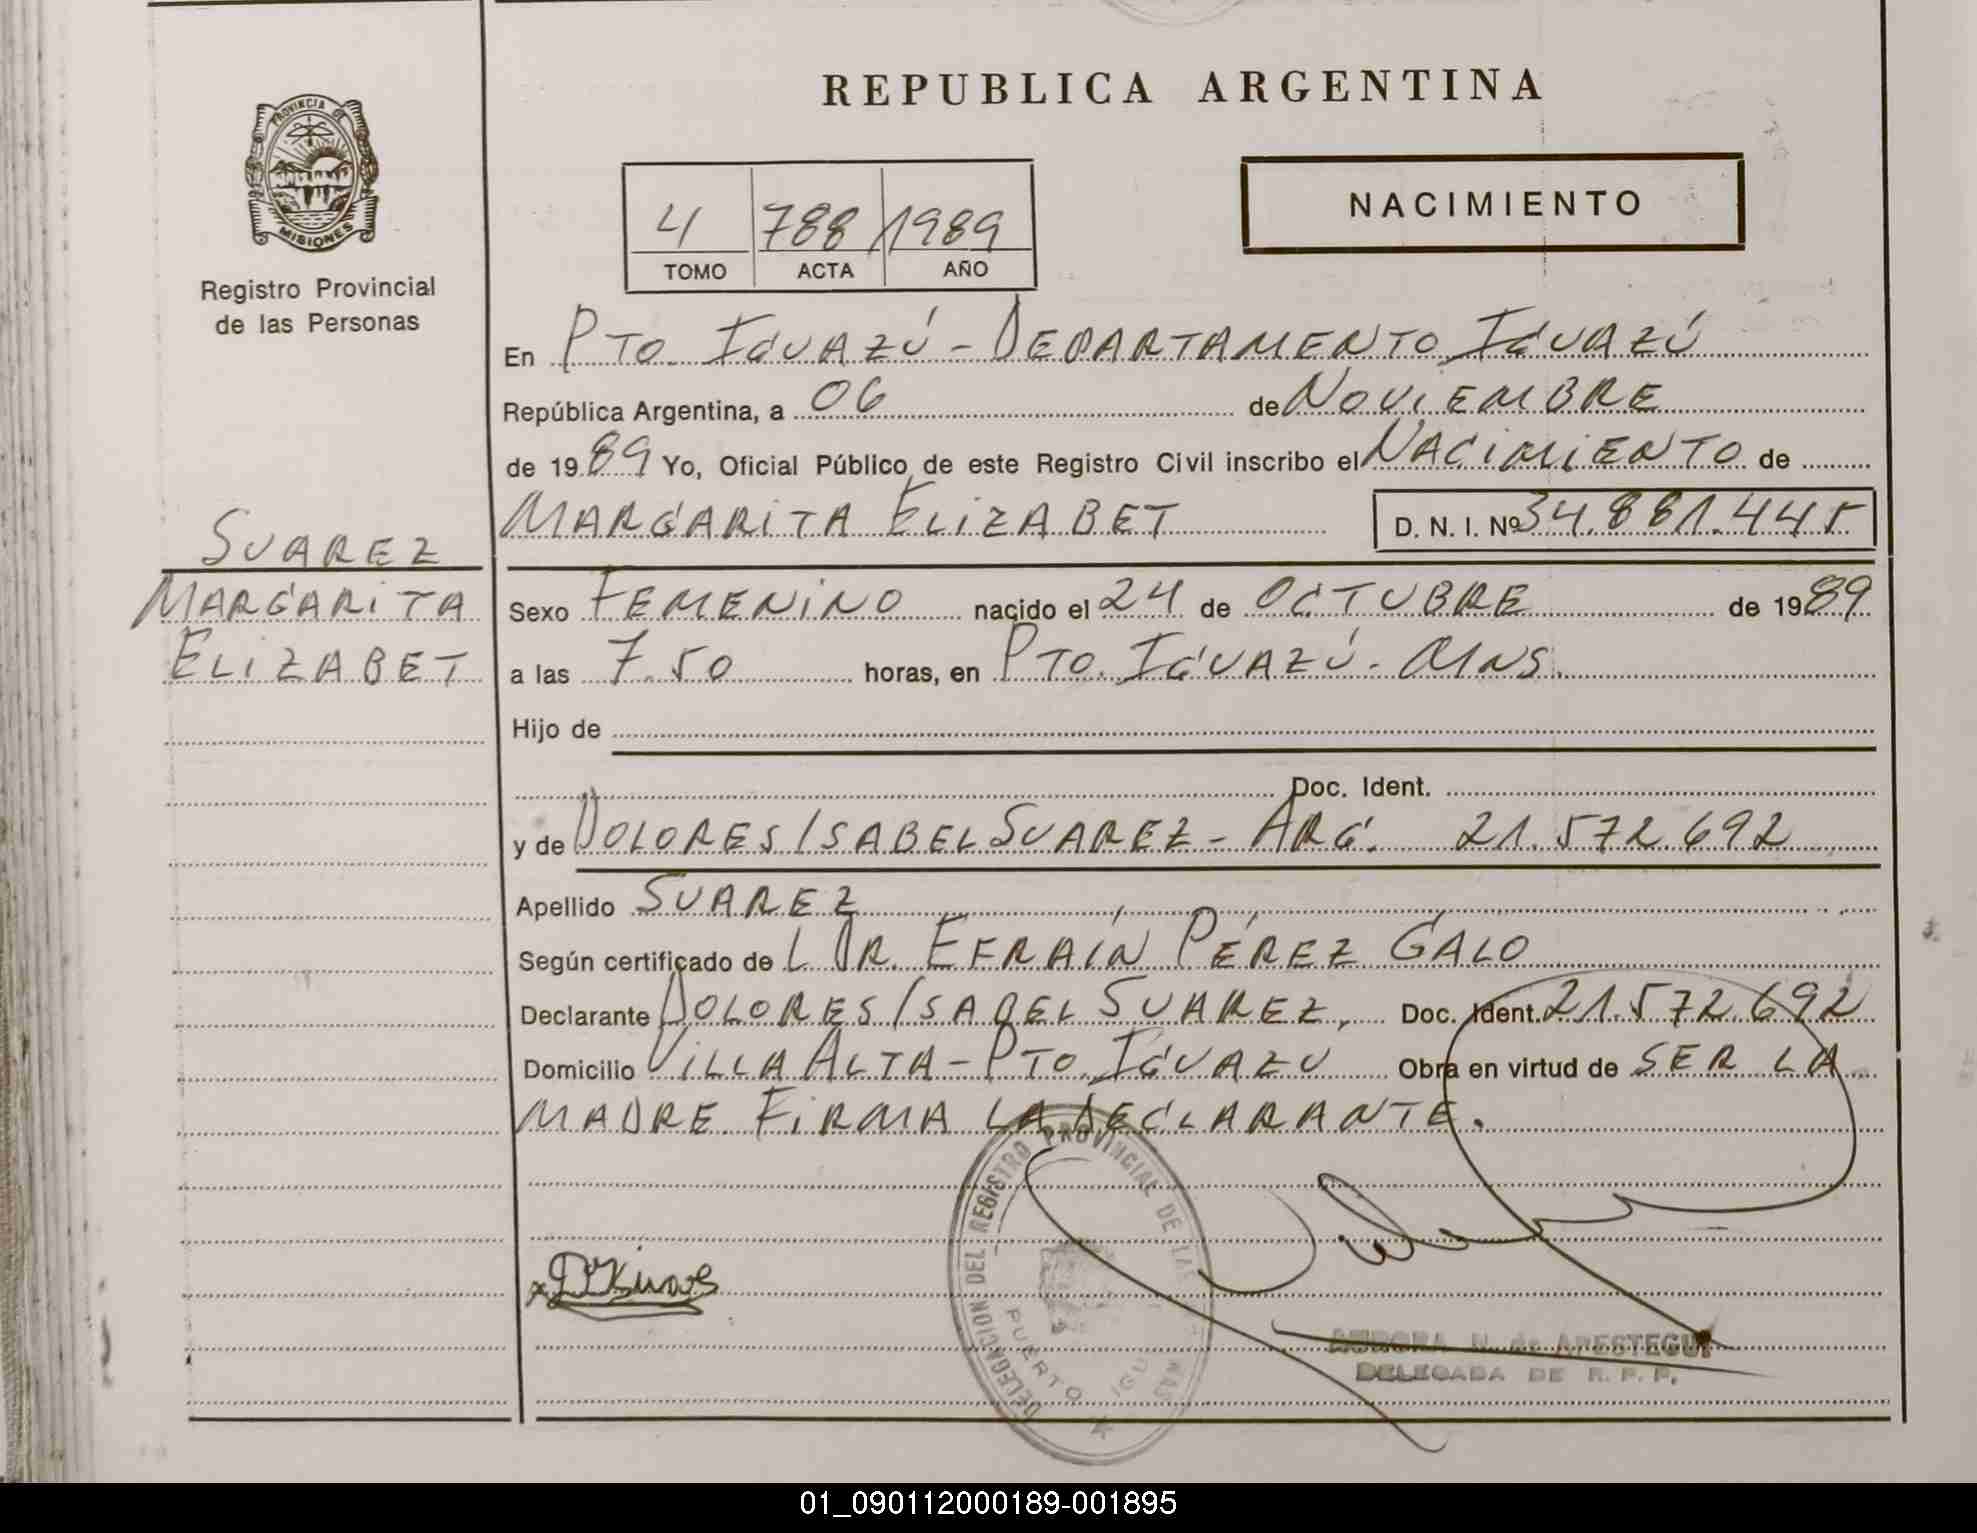 REPUBLICA ARGENTINA
PROVINCIA DE
MISIONES
Registro Provincial
de las Personas
NACIMIENTO
4 788 1989
TOMO ACTA AÑO
En PTO. IGUAZÚ - DEPARTAMENTO IGUAZÚ
República Argentina, a 06 de NOVIEMBRE
de 1989 Yo, Oficial Público de este Registro Civil inscribo el NACIMIENTO de
MARGARITA ELIZABET D. N. I. Nº 34.881.445
SUAREZ
MARGARITA
ELIZABET
Sexo FEMENINO nacido el 24 de OCTUBRE de 1989
a las 7.50 horas, en PTO. IGUAZÚ - MNS.
Hijo de
Doc. Ident.
y de DOLORES ISABEL SUAREZ - ARG. 21.572.692
Apellido SUAREZ
Según certificado de L DR. EFRAÍN PÉREZ GALO
Declarante DOLORES ISABEL SUAREZ, Doc. Ident. 21.572.692
Domicilio VILLA ALTA - PTO. IGUAZU Obra en virtud de SER LA
MADRE FIRMA LA DECLARANTE.
DELEGACION DEL REGISTRO PROVINCIAL DE LAS
PUERTO IGU
AURORA N. de APESTEGUI
DELEGADA DE R. P. P.
01_090112000189-001895